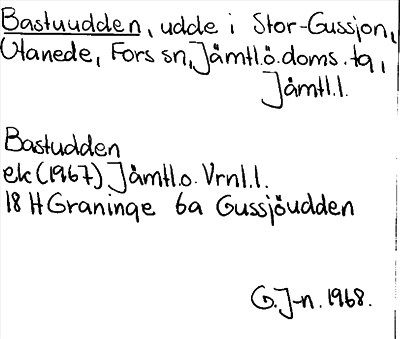 Bastuudden, udde i Stor-Gussjon,
Utanede, Fors sn, Jämtl.ö.doms.tg,
Jämtl.l.
Bastudden
ek (1967) Jämtl.o. Vrnl.l.
18 H Graninge 6a Gussjöudden
G.J-n. 1968.